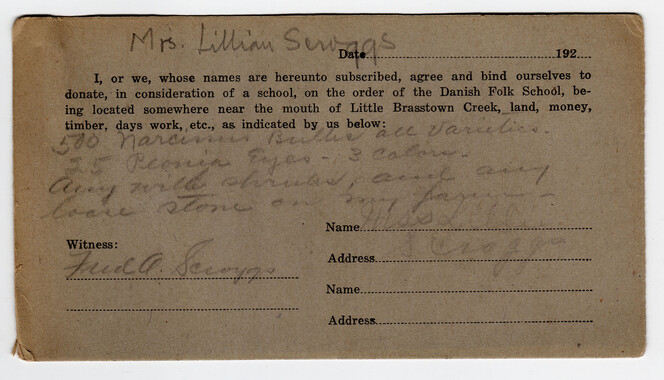 Mrs. Lillian Scroggs
Date 192
I, or we, whose names are hereunto subscribed, agree and bind ourselves to
donate, in consideration of a school, on the order of the Danish Folk School, be-
ing located somewhere near the mouth of Little Brasstown Creek, land, money,
timber, days work, etc., as indicated by us below:
500 Narcissus Bulbs all Varieties.
25 Peonia Eyes - 3 colors.
Any wild shrubs, and any
loose stone on my farm -
Name
Scroggs
Witness:
Fred O. Scroggs
Address
Name
Address